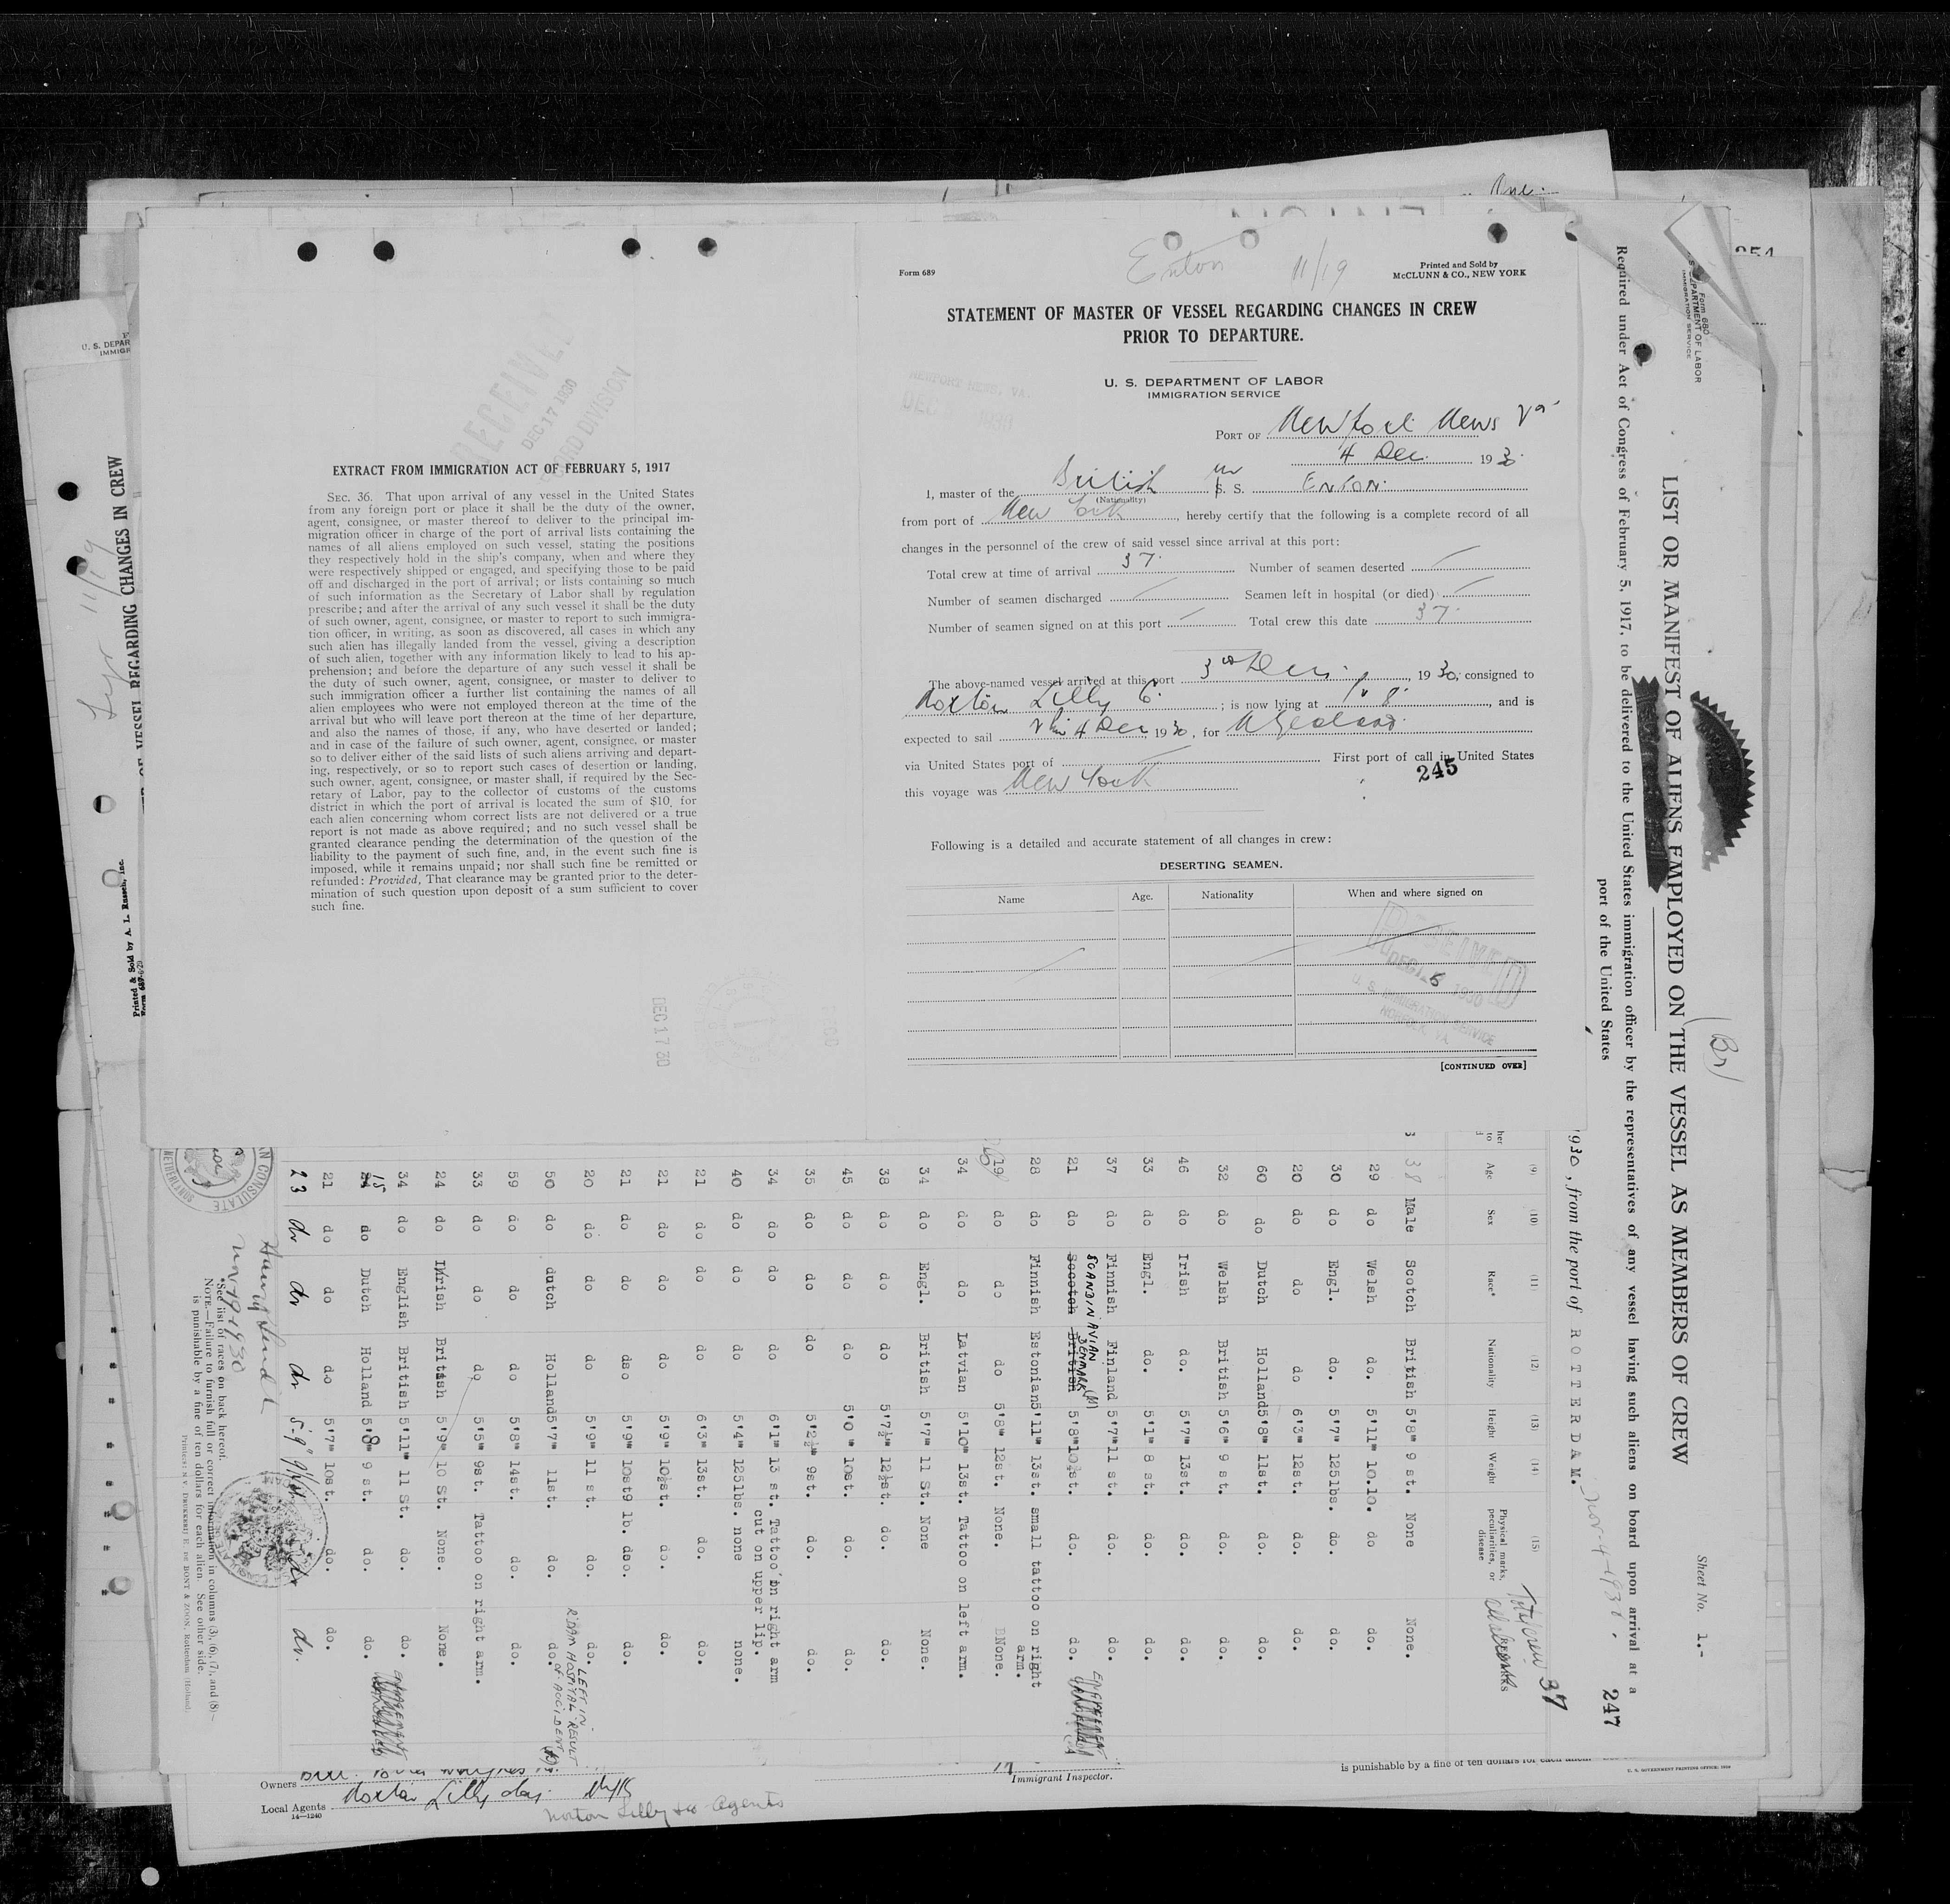 Form 689
Enton 11/19
Printed and Sold by
McCLUNN & CO., NEW YORK
STATEMENT OF MASTER OF VESSEL REGARDING CHANGES IN CREW
PRIOR TO DEPARTURE.
U. S. DEPARTMENT OF LABOR
IMMIGRATION SERVICE
PORT OF Newport News Va
4 Dec. 1930.
I, master of the British S. S. ENTON.
(Nationality)
from port of New York, hereby certify that the following is a complete record of all
changes in the personnel of the crew of said vessel since arrival at this port:
Total crew at time of arrival 37. Number of seamen deserted
Number of seamen discharged Seamen left in hospital (or died)
Number of seamen signed on at this port Total crew this date 37.
The above-named vessel arrived at this port 3rd Dec. 1930, consigned to
Norton Lilly Co. ; is now lying at 8. , and is
expected to sail 4 Dec 1930, for N Zealand.
via United States port of First port of call in United States
this voyage was New York
245
Following is a detailed and accurate statement of all changes in crew:
DESERTING SEAMEN.
Name Age. Nationality When and where signed on
RECEIVED
DEC 1930
U. S. IMMIGRATION SERVICE
NORFOLK, VA.
[CONTINUED OVER]
NEWPORT NEWS, VA.
DEC 1930
RECEIVED
DEC 17 1930
RECORD DIVISION
EXTRACT FROM IMMIGRATION ACT OF FEBRUARY 5, 1917
SEC. 36. That upon arrival of any vessel in the United States
from any foreign port or place it shall be the duty of the owner,
agent, consignee, or master thereof to deliver to the principal im-
migration officer in charge of the port of arrival lists containing the
names of all aliens employed on such vessel, stating the positions
they respectively hold in the ship's company, when and where they
were respectively shipped or engaged, and specifying those to be paid
off and discharged in the port of arrival; or lists containing so much
of such information as the Secretary of Labor shall by regulation
prescribe; and after the arrival of any such vessel it shall be the duty
of such owner, agent, consignee, or master to report to such immigra-
tion officer, in writing, as soon as discovered, all cases in which any
such alien has illegally landed from the vessel, giving a description
of such alien, together with any information likely to lead to his ap-
prehension; and before the departure of any such vessel it shall be
the duty of such owner, agent, consignee, or master to deliver to
such immigration officer a further list containing the names of all
alien employees who were not employed thereon at the time of the
arrival but who will leave port thereon at the time of her departure,
and also the names of those, if any, who have deserted or landed;
and in case of the failure of such owner, agent, consignee, or master
so to deliver either of the said lists of such aliens arriving and depart-
ing, respectively, or so to report such cases of desertion or landing,
such owner, agent, consignee, or master shall, if required by the Sec-
retary of Labor, pay to the collector of customs of the customs
district in which the port of arrival is located the sum of $10 for
each alien concerning whom correct lists are not delivered or a true
report is not made as above required; and no such vessel shall be
granted clearance pending the determination of the question of the
liability to the payment of such fine, and, in the event such fine is
imposed, while it remains unpaid; nor shall such fine be remitted or
refunded: Provided, That clearance may be granted prior to the deter-
mination of such question upon deposit of a sum sufficient to cover
such fine.
DEC 17 30
Form 680
U. S. DEPARTMENT OF LABOR
IMMIGRATION SERVICE
(Br)
Sheet No. 1.-
LIST OR MANIFEST OF ALIENS EMPLOYED ON THE VESSEL AS MEMBERS OF CREW
Required under Act of Congress of February 5, 1917, to be delivered to the United States immigration officer by the representatives of any vessel having such aliens on board upon arrival at a
port of the United States
247
1930, from the port of ROTTERDAM.
Total crew 37
(9) (10) (11) (12) (13) (14) (15)
Age Sex Race* Nationality Height Weight Physical marks, peculiarities, or disease REMARKS
38 Male Scotch British 5'8" 9 st. None None.
29 do Welsh do. 5'11" 10.10. do do.
30 do Engl. do. 5'7" 125lbs. do. do.
20 do do do 6'3" 12st. do. do.
60 do Dutch Holland 5'8" 11st. do. do.
32 do Welsh British 5'6" 9 st. do. do.
46 do Irish do. 5'7" 13st. do. do.
33 do Engl. do. 5'1" 8 st. do. do.
37 do Finnish Finland 5'7" 11 st. do. do.
SCANDINAVIAN DENMARK
21 do Scotch British 5'8" 10½st. do. do.
28 do Finnish Estonian 5'11" 13st. small tattoo on right arm.
19 do do do 5'8" 12st. None. None.
34 do do Latvian 5'10" 13st. Tattoo on left arm.
34 do Engl. British 5'7" 11 St. None None.
38 do do do 5'7½" 12½st. do. do.
45 do do do 5'0" 10st. do. do.
35 do do do 5'2½" 9st. do. do.
34 do do do 6'1" 13 st. Tattoo on right arm
cut on upper lip.
40 do do do 5'4" 125lbs. none none.
21 do do do 6'3" 13st. do. do.
21 do do do 5'9" 10½st. do. do.
21 do do do 5'9" 10st9 lb. do. do.
20 do do do 5'9" 11 st. do. do.
LEFT IN R'DAM HOSPITAL RESULT OF ACCIDENT
50 do dutch Holland 5'7" 11st. do. do.
59 do do do 5'8" 14st. do. do.
33 do do do 5'5" 9st. Tattoo on right arm.
24 do Irish British 5'9" 10 St. None. None.
34 do English British 5'11" 11 St. do. do.
15 do Dutch Holland 5'8" 9 st. do. do.
21 do do do 5'7" 10st. do. do.
23 do do do 5'-9" do.
*See list of races on back hereof.
NOTE.—Failure to furnish full or correct information in columns (3), (6), (7), and (8)
is punishable by a fine of ten dollars for each alien. See other side.
Owners
Local Agents Norton Lilly
14—1240
Norton Lilly & Co Agents
Immigrant Inspector.
is punishable by a fine of ten dollars for each alien.
U. S. GOVERNMENT PRINTING OFFICE
U. S. DEPAR
IMMIGR
11/19
REGARDING CHANGES IN CREW
Printed & Sold by A. L. Russell, Inc.